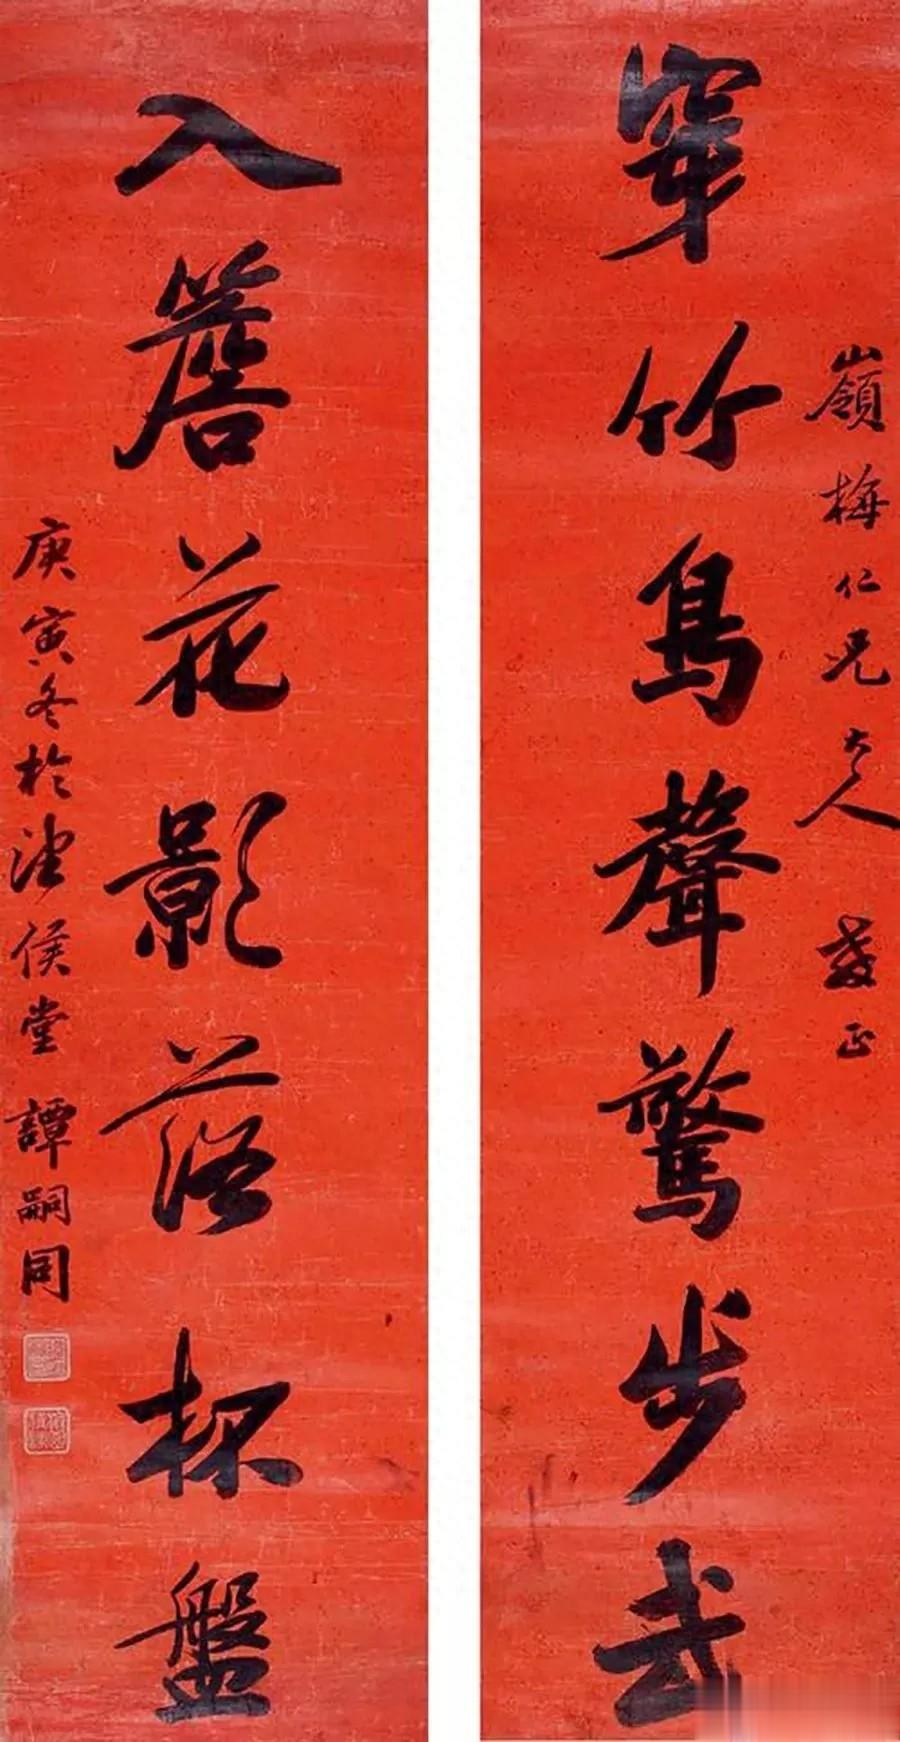 嶺梅仁兄大人教正
穿竹鳥聲驚步武
入簷花影落杯盤
庚寅冬於侯堂譚嗣同